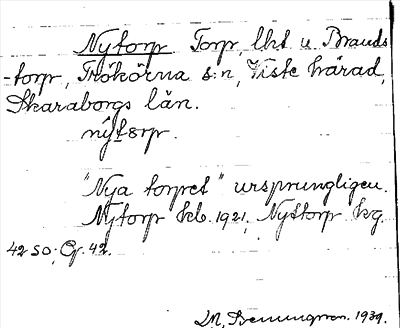 Nytorp Torp, lht u. Brands
-torp, Trökörna s:n, Viste härad,
Skaraborgs län.
nŷtərp.
"Nya torpet" ursprungligen.
Nytorp kb. 1921, Nyttorp kg.
42 SO; Gr. 42.
1939.